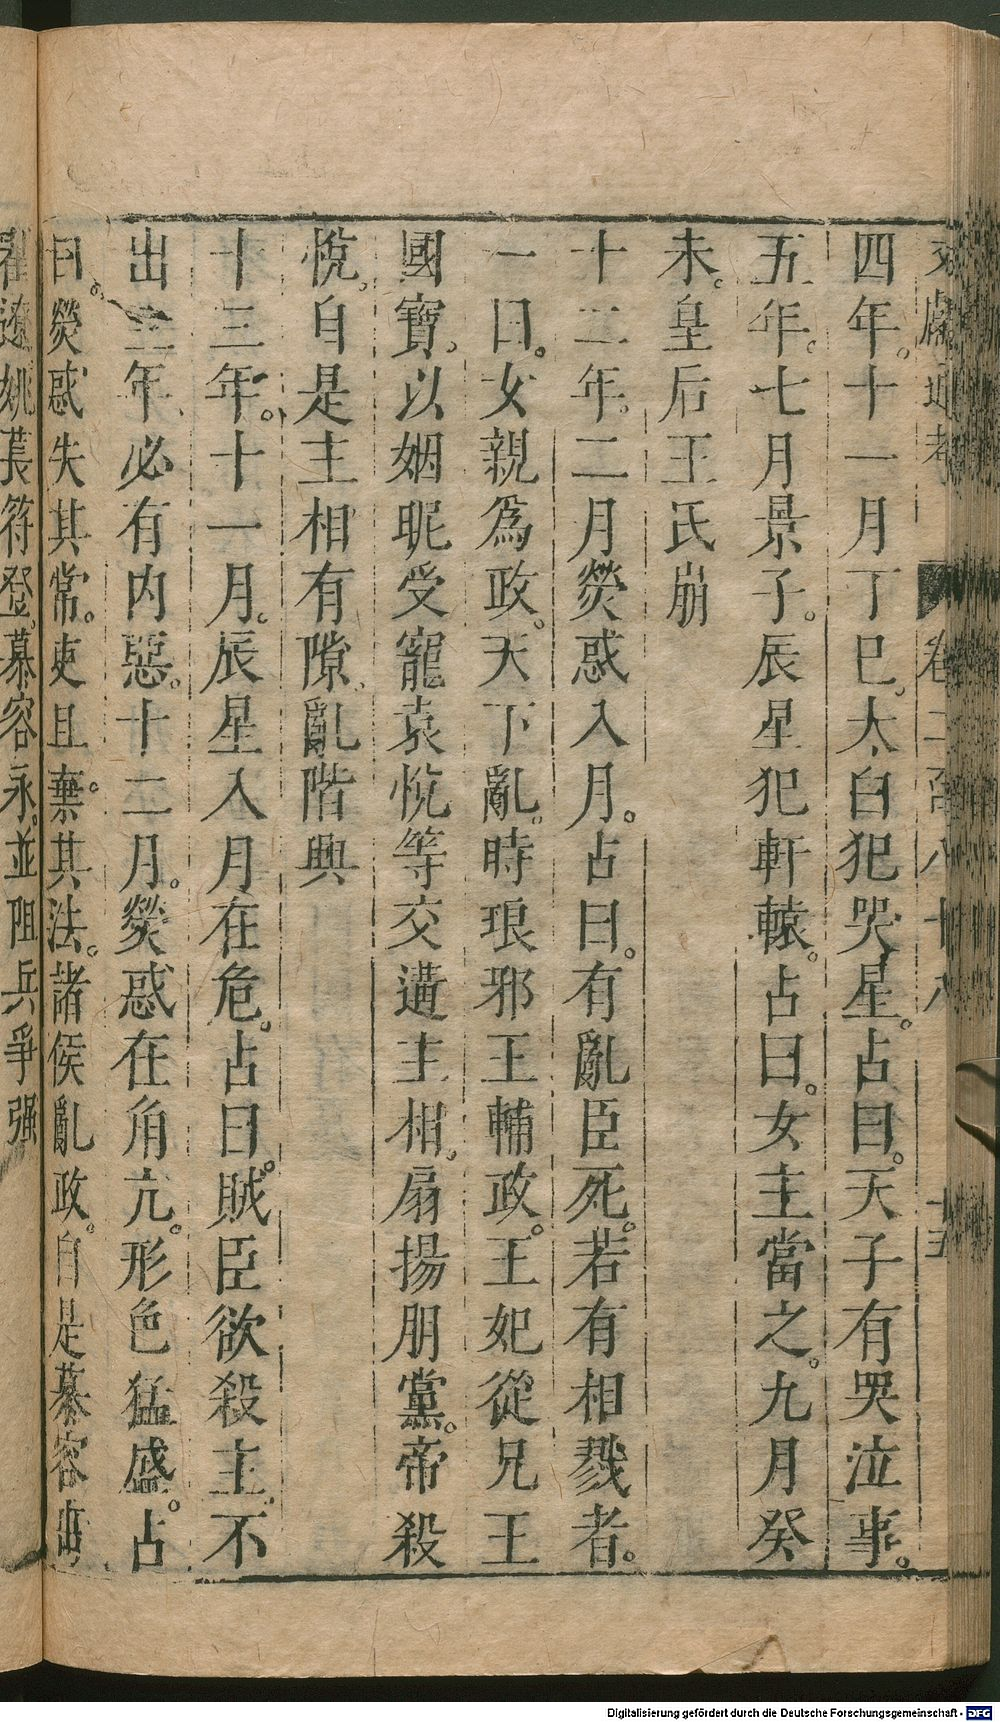 文獻通考 卷二百八十八 十五
四年。十一月丁巳。太白犯哭星。占曰。天子有哭泣事。
五年。七月景子。辰星犯軒轅。占曰。女主當之。九月癸
未。皇后王氏崩
十二年。二月熒惑入月。占曰。有亂臣死。若有相戮者。
一曰。女親爲政。天下亂。時琅邪王輔政。王妃從兄王
國寶。以姻昵受寵。袁悅等交遘主相。扇揚朋黨。帝殺
悅。自是主相有隙。亂階興
十三年。十一月。辰星入月在危。占曰。賊臣欲殺主。不
出三年。必有內惡。十二月。熒惑在角亢。形色猛盛。占
曰。熒惑失其常。吏且棄其法。諸侯亂政。自是慕容
翟遼姚萇符登。慕容永。並阻兵爭强
Digitalisierung gefördert durch die Deutsche Forschungsgemeinschaft - DFG